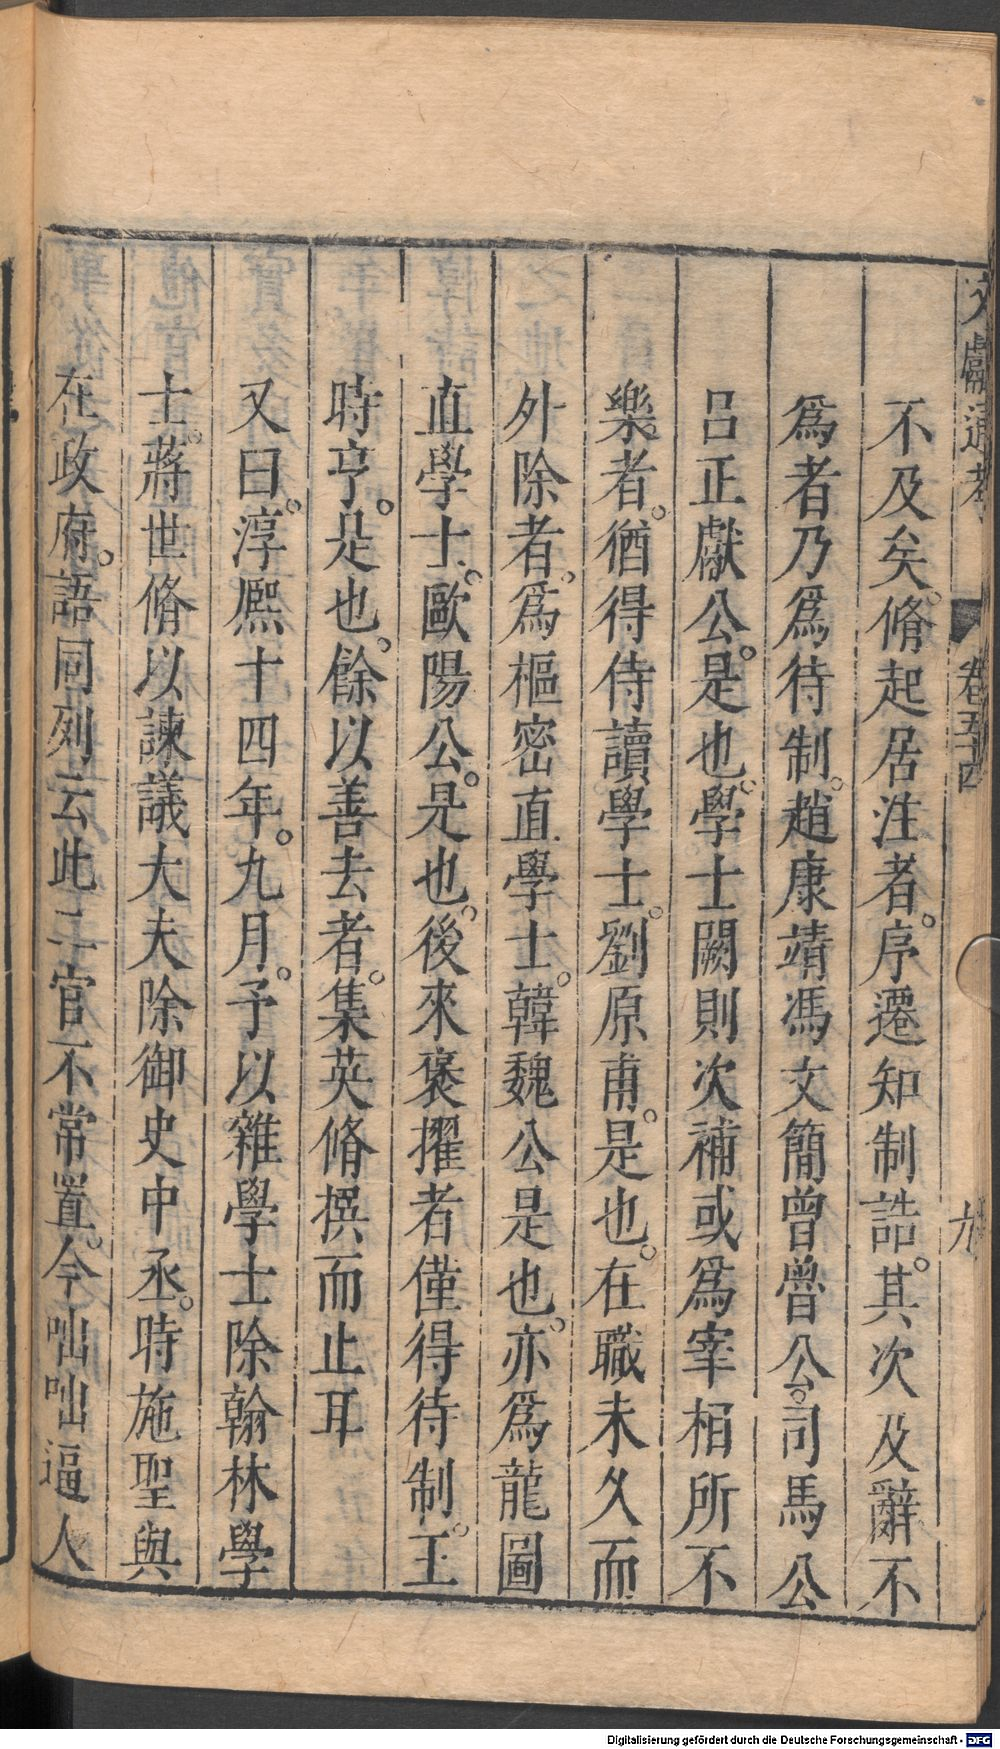 文獻通考 卷五十四 九
不及矣。脩起居注者。序遷知制誥。其次及辭不
爲者乃爲待制。趙康靖馮文簡曾曾公。司馬公
呂正獻公。是也。學士闕則次補或爲宰相所不
樂者。猶得侍讀學士。劉原甫。是也。在職未久而
外除者。爲樞密直學士。韓魏公是也。亦爲龍圖
直學士。歐陽公。是也。後來褒擢者僅得待制。王
時亨。是也。餘以善去者。集英脩撰而止耳
又曰。淳熈十四年。九月。予以雜學士除翰林學
士。蔣世脩以諫議大夫除御史中丞。時施聖與
在政府。語同列云此二官不常置。今咄咄逼人
Digitalisierung gefördert durch die Deutsche Forschungsgemeinschaft - DFG